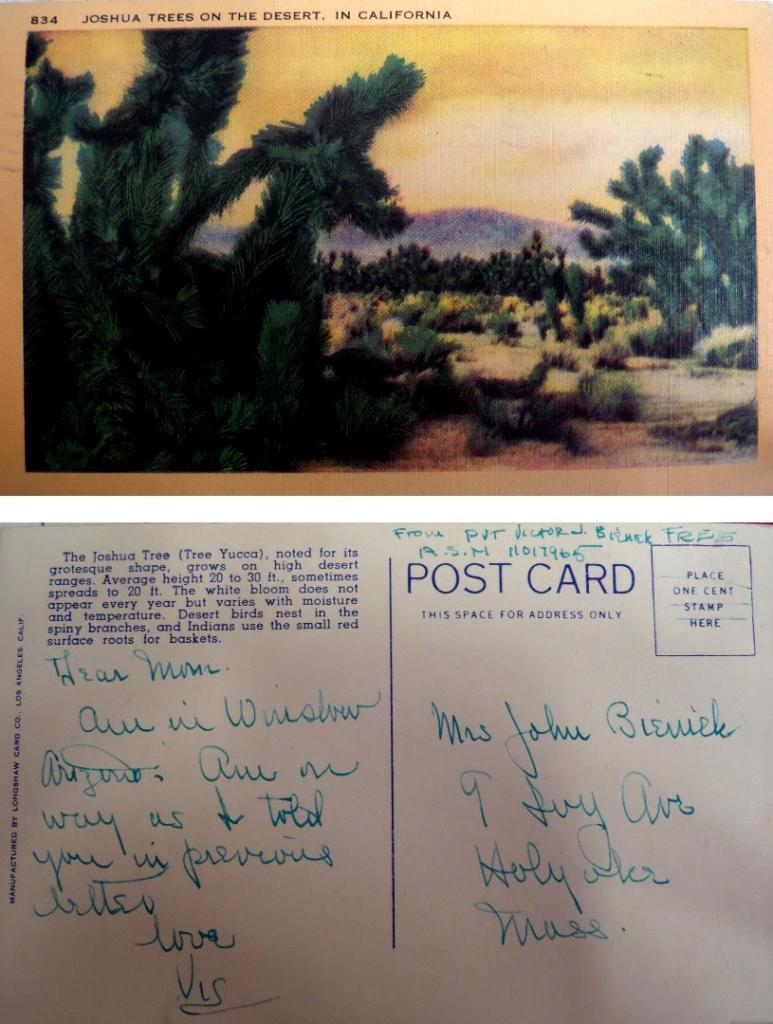 834 JOSHUA TREES ON THE DESERT, IN CALIFORNIA
The Joshua Tree (Tree Yucca), noted for its
grotesque shape, grows on high desert
ranges. Average height 20 to 30 ft., sometimes
spreads to 20 ft. The white bloom does not
appear every year but varies with moisture
and temperature. Desert birds nest in the
spiny branches, and Indians use the small red
surface roots for baskets.
MANUFACTURED BY LONGSHAW CARD CO., LOS ANGELES, CALIF.
Dear Mom.
Am in Winslow
Arizona. Am on
way as I told
you in previous
letter
love
Vic
From Pvt Victor J. Bieniek FREE
A.S.N 11017965
POST CARD
THIS SPACE FOR ADDRESS ONLY
PLACE
ONE CENT
STAMP
HERE
Mrs John Bieniek
9 Ivy Ave
Holyoke
Mass.